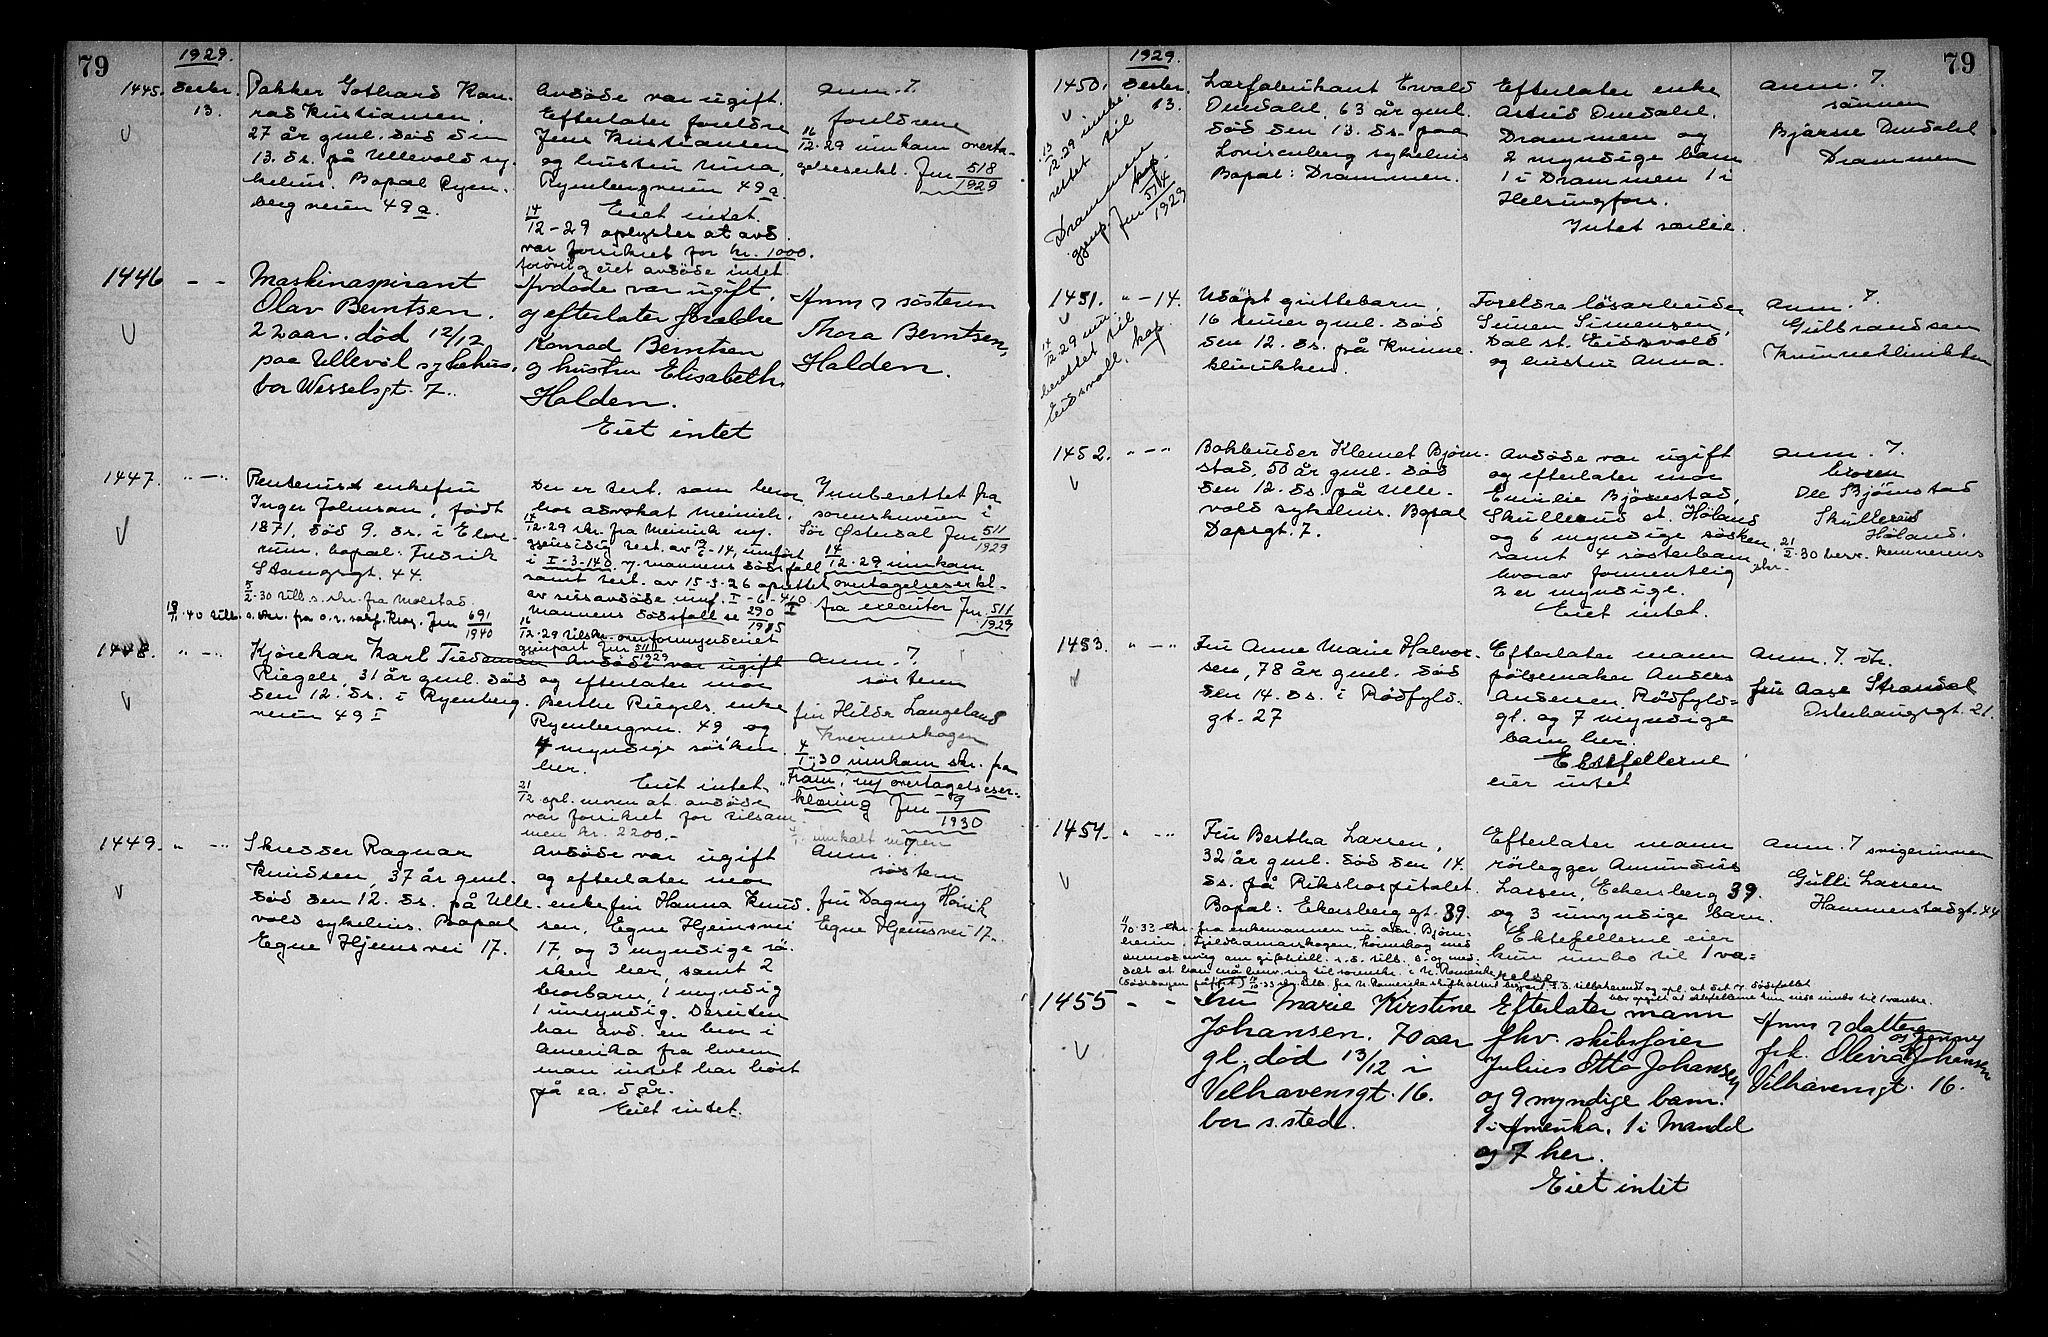 79
1929.
1445. Desbr. 13.
Pakker Gothard Kon-
rad Kristiansen,
27 år gml. død den
13. ds. på Ullevold sy-
kehus. Bopæl Ryen-
berg veien 49a.
Avdöde var ugift.
Efterlater foreldre
Jens Kristiansen
og hustru
Ryenbergveien 49a.
Eiet intet.
14/12-29 oplystes at avd.
var forsikret for kr. 1000.
forövrig eiet avdöde intet
anm. 7.
foreldrene
16/12-29 innkom overta-
gelseserkl. Jnr 518/1929
1446 - -
Maskinaspirant
Olav Berntsen.
22 aar. død 12/12
paa Ullevål sykehus.
bor Wesselsgt. 7.
Avdøde var ugift,
og efterlater forældre
Konrad Berntsen
og hustru Elisabeth.
Halden.
Eiet intet
Anm 7 søsteren
Thora Berntsen,
Halden.
1447. " - "
Rentenist enkefru
Inger Johnsen, født
1871, död 9. ds. i Elve-
rum, bopæl: Fredrik
Stangsgt. 44.
5/2-30 till. s. skr. fra Molstad.
Der er test. som beror
hos advokat Meinich.
14/12-29 skr. fra Meinich m.
gjensidig test. av 19/6-14, innfört
i I-3-140 v. mannens dödsfall
samt test. av 15-3-26 oprettet
av sisavdöde innf. I-6-410
mannens dödsfall se 290/1925 I
16/12-29 tilskr. overformynderiet
gjenpart Jnr 511/1929
Innberettet fra
sorenskriveren i
Sör Østerdal Jnr 511/1929
14/12-29 innkom
overtagelseserkl.
fra executor Jnr 511/1929
Jnr 691/1940
1448. " - "
Kjørekar Karl Tiedemann
Riegels, 31 år gml. död
den 12. ds. i Ryenberg-
veien 49 I
Avdöde var ugift
og efterlater mor
Berthe Riegels, enke
Ryenbergvn. 49 og
4 myndige sösken
her.
Eiet intet.
31/12 opl. moren at avdöde
var forsikret for tilsam-
men kr. 2200.-
anm. 7.
søsteren
fru Hilda Langeland
4/1-30 innkom skr. fra
"Fram", ny overtagelseser-
klæring Jnr 9/1930
innkalt moren
1449. " - "
Skredder Ragnar
Knudsen, 37 år gml.
död den 12. ds. på Ulle-
vold sykehus. Bopæl
Egne Hjemsvei 17.
Avdöde var ugift
og efterlater mor
enkefru Hanna Knud-
sen, Egne Hjemsvei
17, og 3 myndige sö-
sken her, samt 2
brorbarn, 1 myndig
1 umyndig. Desuten
har avd. en bror i
Amerika fra hvem
man intet har hört
på ca. 5 år.
Eiet intet.
Anm. 7
søsteren
fru Dagny Hovik
Egne Hjemsvei 17.
79
1929.
1450. Desbr. 13.
13/12-29 innbe-
rettet til
Drammens
skp.
gjenp. Jnr 514/1929
Lærfabrikant Ewald
Omdahl, 63 år gml.
död den 13. ds. paa
Lovisenberg sykehus
Bopæl: Drammen.
Efterlater enke
Astrid Omdahl,
Drammen og
2 myndige barn
1 i Drammen 1 i
Helsingfors.
Intet særeie.
anm. 7.
sønnen
Bjarne Omdahl
Drammen
1451. " - 14.
14/12-29 inn-
berettet til
Eidsvoll. skp.
Udöpt guttebarn,
16 timer gml. död
den 12. ds. på Kvinne-
klinikken.
Foreldre lösarbeider
Simen Simensen,
Dal st. Eidsvold,
og hustru Anna.
anm. 7.
Gulbrandsen
Kvinneklinikken
1452. " - "
Bokbinder Klemet Bjørn-
stad, 50 år gml. död
den 12. ds. på Ulle-
vold sykehus. Bopæl
Dapsgt. 7.
Avdöde var ugift
og efterlater mor
Emilie Bjørnestad,
Skullerud st. Höland
og 6 myndige søsken,
samt 4 sösterbarn
hvorav formentlig
2 er myndige.
Eiet intet.
anm. 7.
broren
Ole Bjørnstad
Skullerud
Höland.
21/2-30 besv. kemnerens
skr.
1453. " - "
Fru Anne Marie Halvor-
sen, 78 år gml. död
den 14. ds. i Rødfyld-
gt. 27
Efterlater mann
pölsemaker Anders
Andersen, Rödfyld-
gt. og 7 myndige
barn her.
Ektefellerne
eier intet
Anm. 7. dtr.
fru Aase Strandal
Osterhausgt. 21.
1454. " - "
Fru Bertha Larsen,
32 år gml. död den 14.
ds. på Rikshospitalet.
Bopæl: Ekersberg gt. 39.
Efterlater mann
rörlegger Amundius
Larsen, Eckersberg 39.
og 3 umyndige barn.
Ektefellerne eier
kun innbo til 1 væ-
relse
anm. 7 svigerinnen
Gulli Larsen
Hammerstadgt. 44
1455 - -
Fru Marie Kirstine
Johansen. 70 aar
gl. død 13/12 i
Velhavensgt. 16.
bor s. sted.
Efterlater mann
fhv. skibsfører
Julius Otto Johansen
og 9 myndige barn.
1 i Amerika, 1 i Mandal
og 7 her.
Eiet intet
Anm 7 datteren
og Jenny
frk. Olivia Johansen
Velhavensgt. 16.